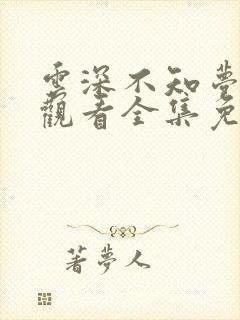 雲深不知夢
觀看全集免
著夢人